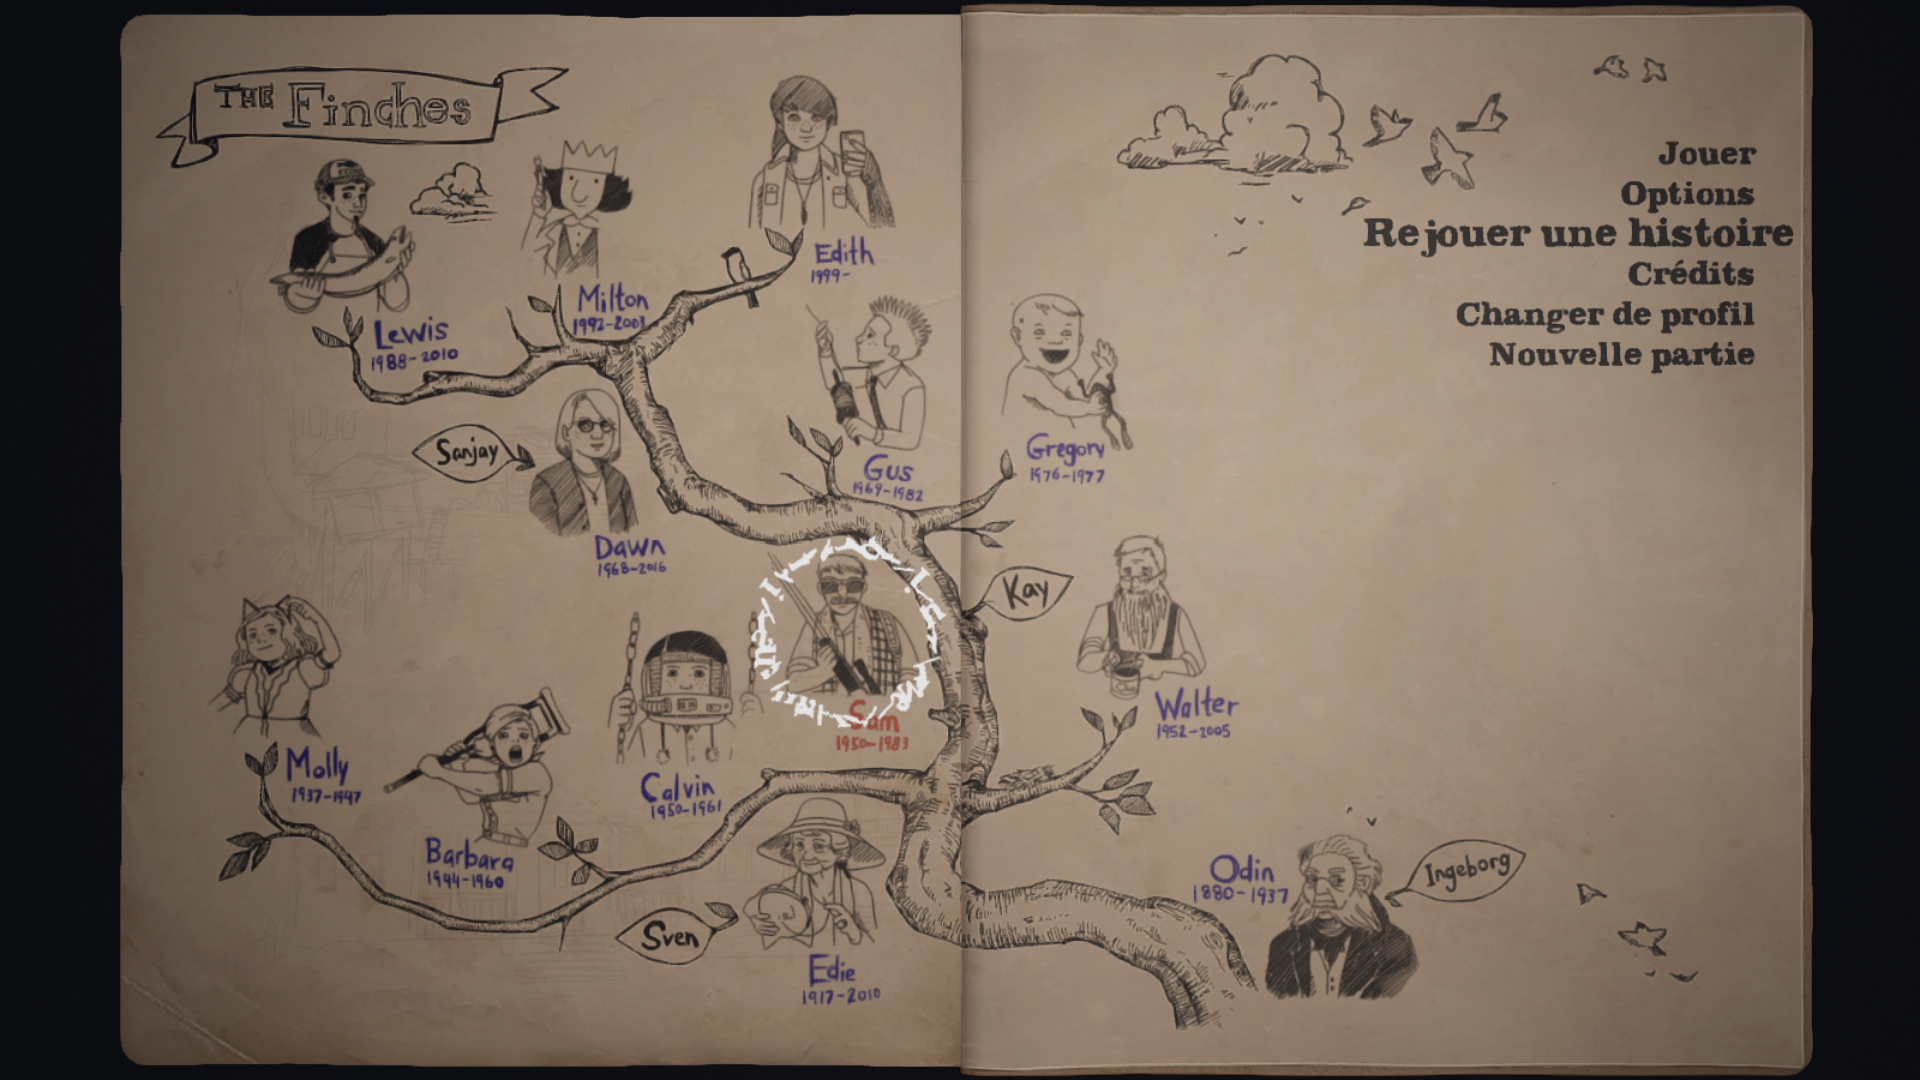 THE Finches
Edith
1999-
Milton
1992-2003
Lewis
1988-2010
Sanjay
Dawn
1968-2016
Gus
1969-1982
Gregory
1976-1977
Kay
Sam
1950-1983
Walter
1952-2005
Molly
1937-1947
Barbara
1944-1960
Calvin
1950-1961
Sven
Edie
1917-2010
Odin
1880-1937
Ingeborg
Jouer
Options
Rejouer une histoire
Crédits
Changer de profil
Nouvelle partie